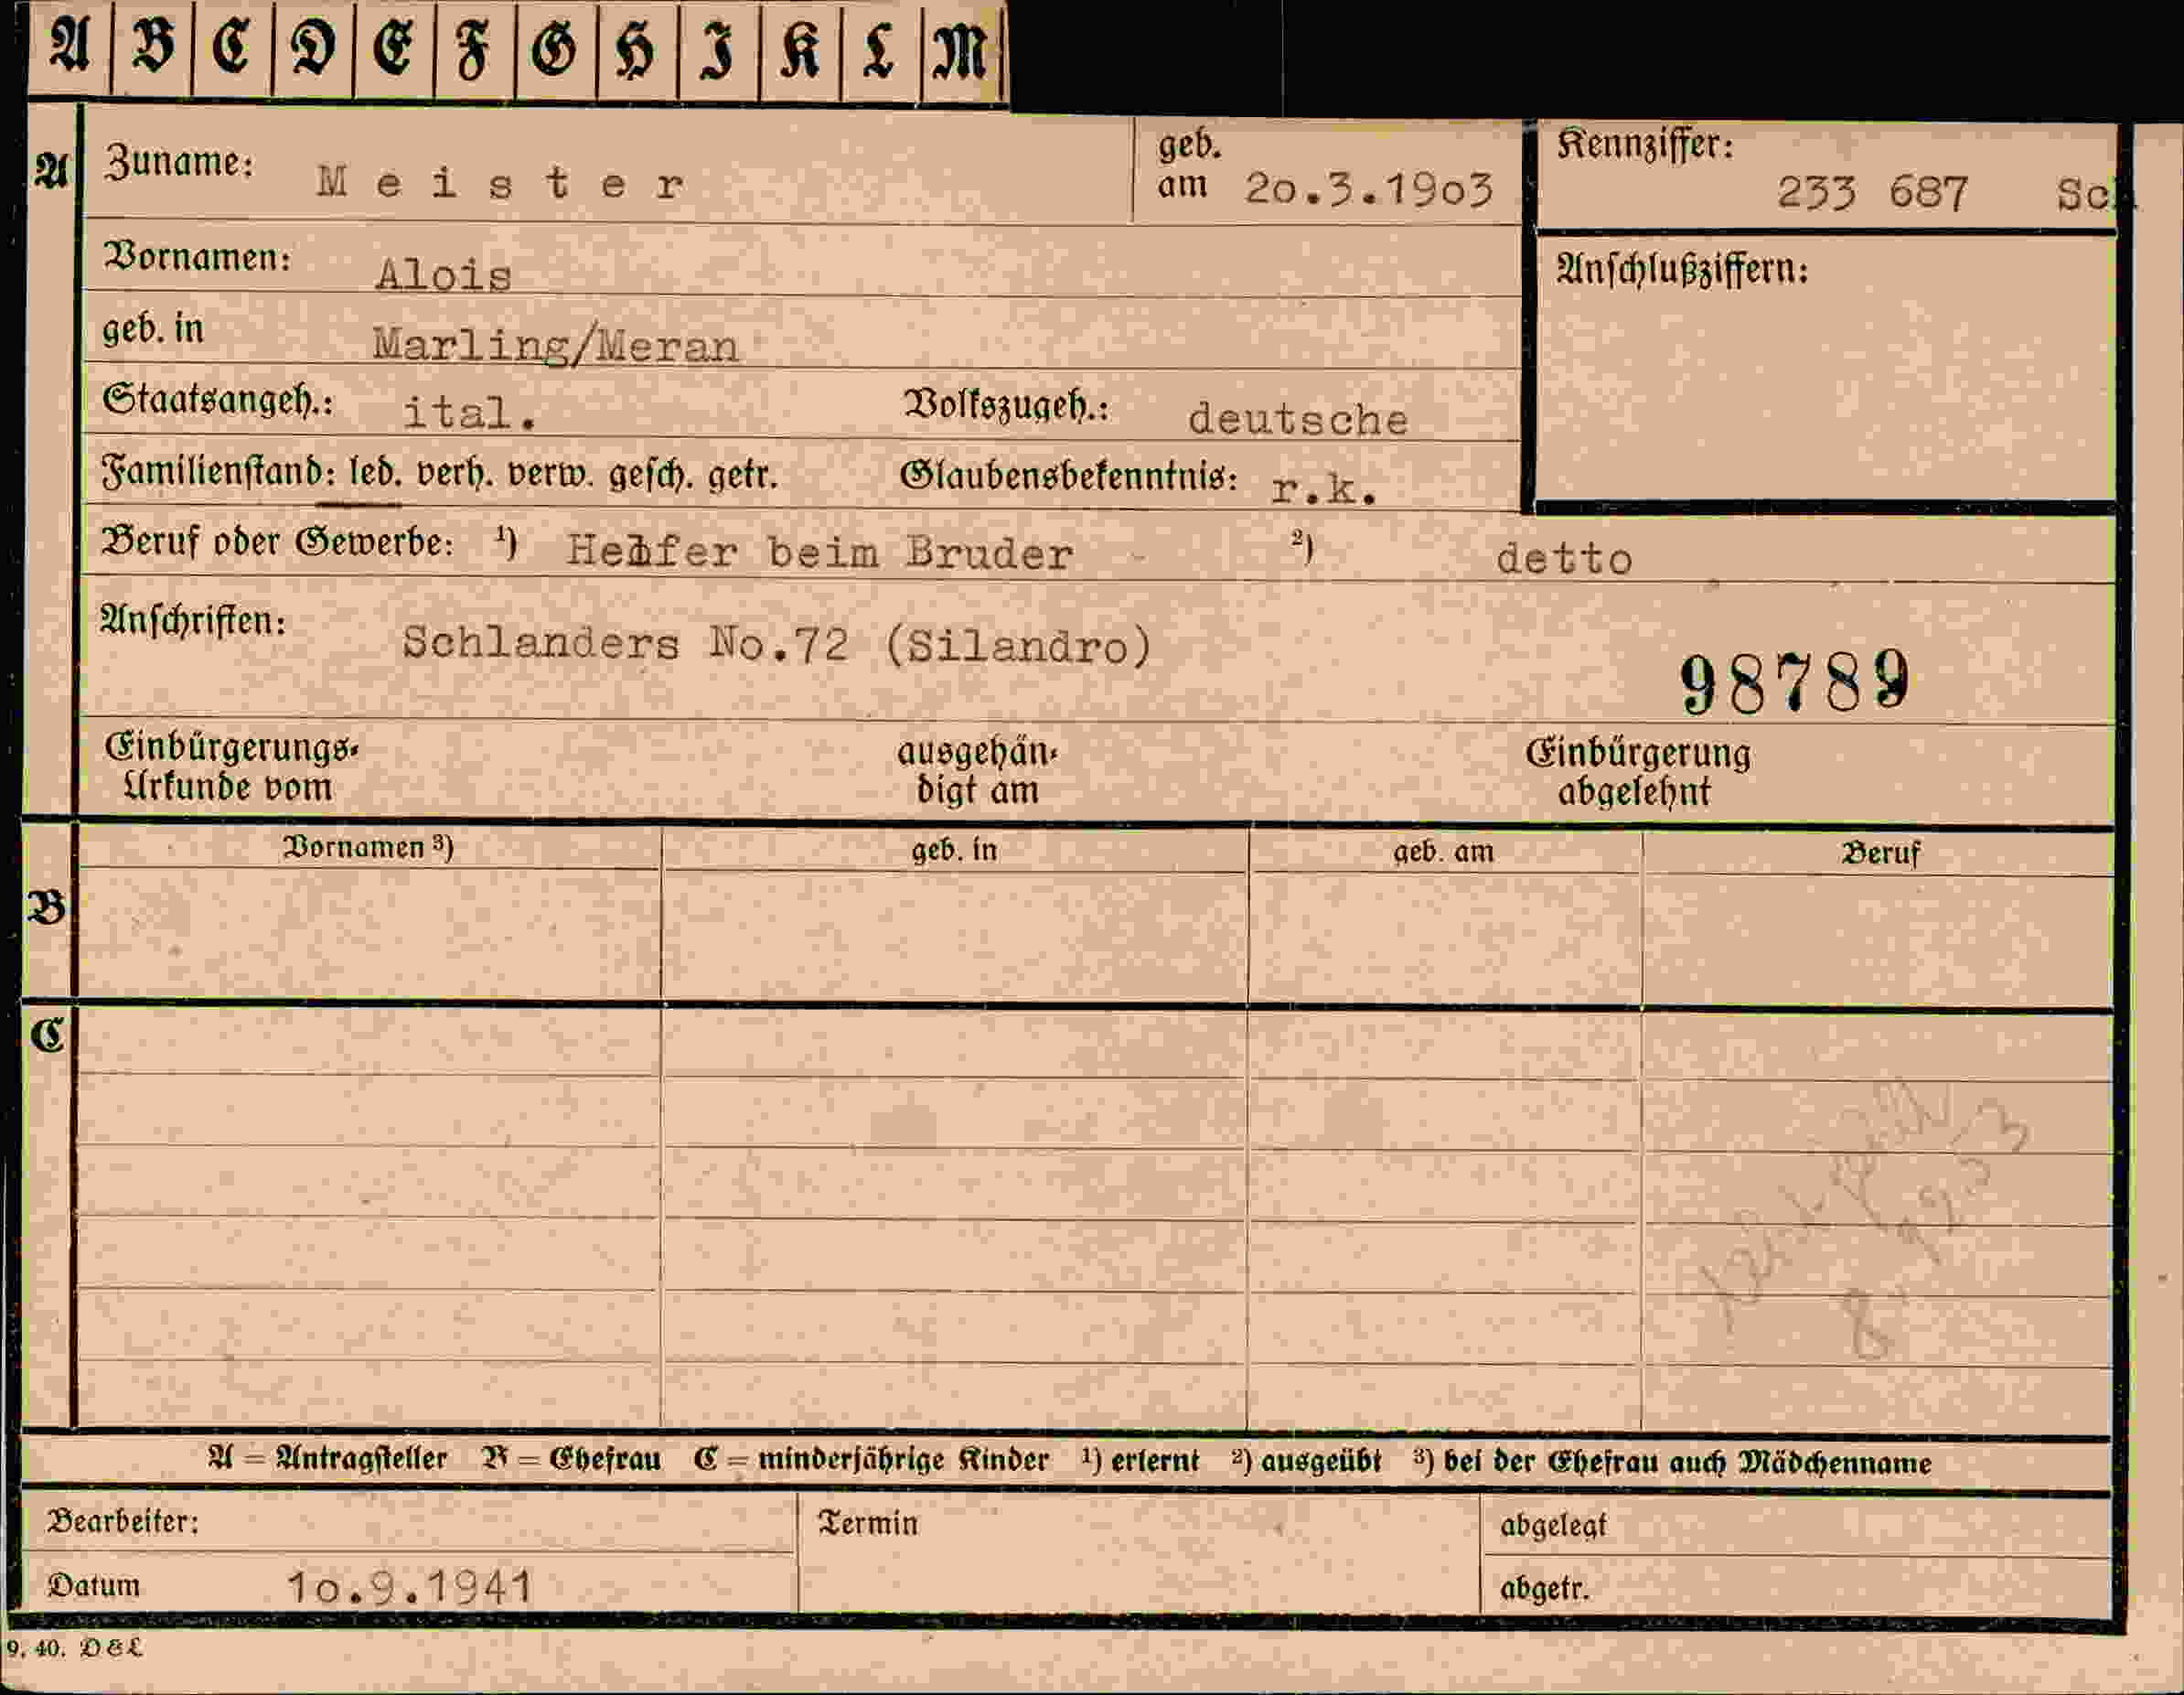 A B C D E F G H I K L M
A Zuname: Meister geb. am 20.3.1903 Kennziffer: 233 687
Vornamen: Alois Anschlußziffern:
geb. in Marling/Meran
Staatsangeh.: ital. Volkszugeh.: deutsche
Familienstand: led. verh. verw. gesch. getr. Glaubensbekenntnis: r.k.
Beruf oder Gewerbe: ¹) Helfer beim Bruder ²) detto
Anschriften: Schlanders No.72 (Silandro)
98789
Einbürgerungs- ausgehän- Einbürgerung
Urkunde vom digt am abgelehnt
Vornamen ³) geb. in geb. am Beruf
B
C
A = Antragsteller B = Ehefrau C = minderjährige Kinder ¹) erlernt ²) ausgeübt ³) bei der Ehefrau auch Mädchenname
Bearbeiter: Termin abgelegt
Datum 10.9.1941 abgetr.
9. 40. D&L